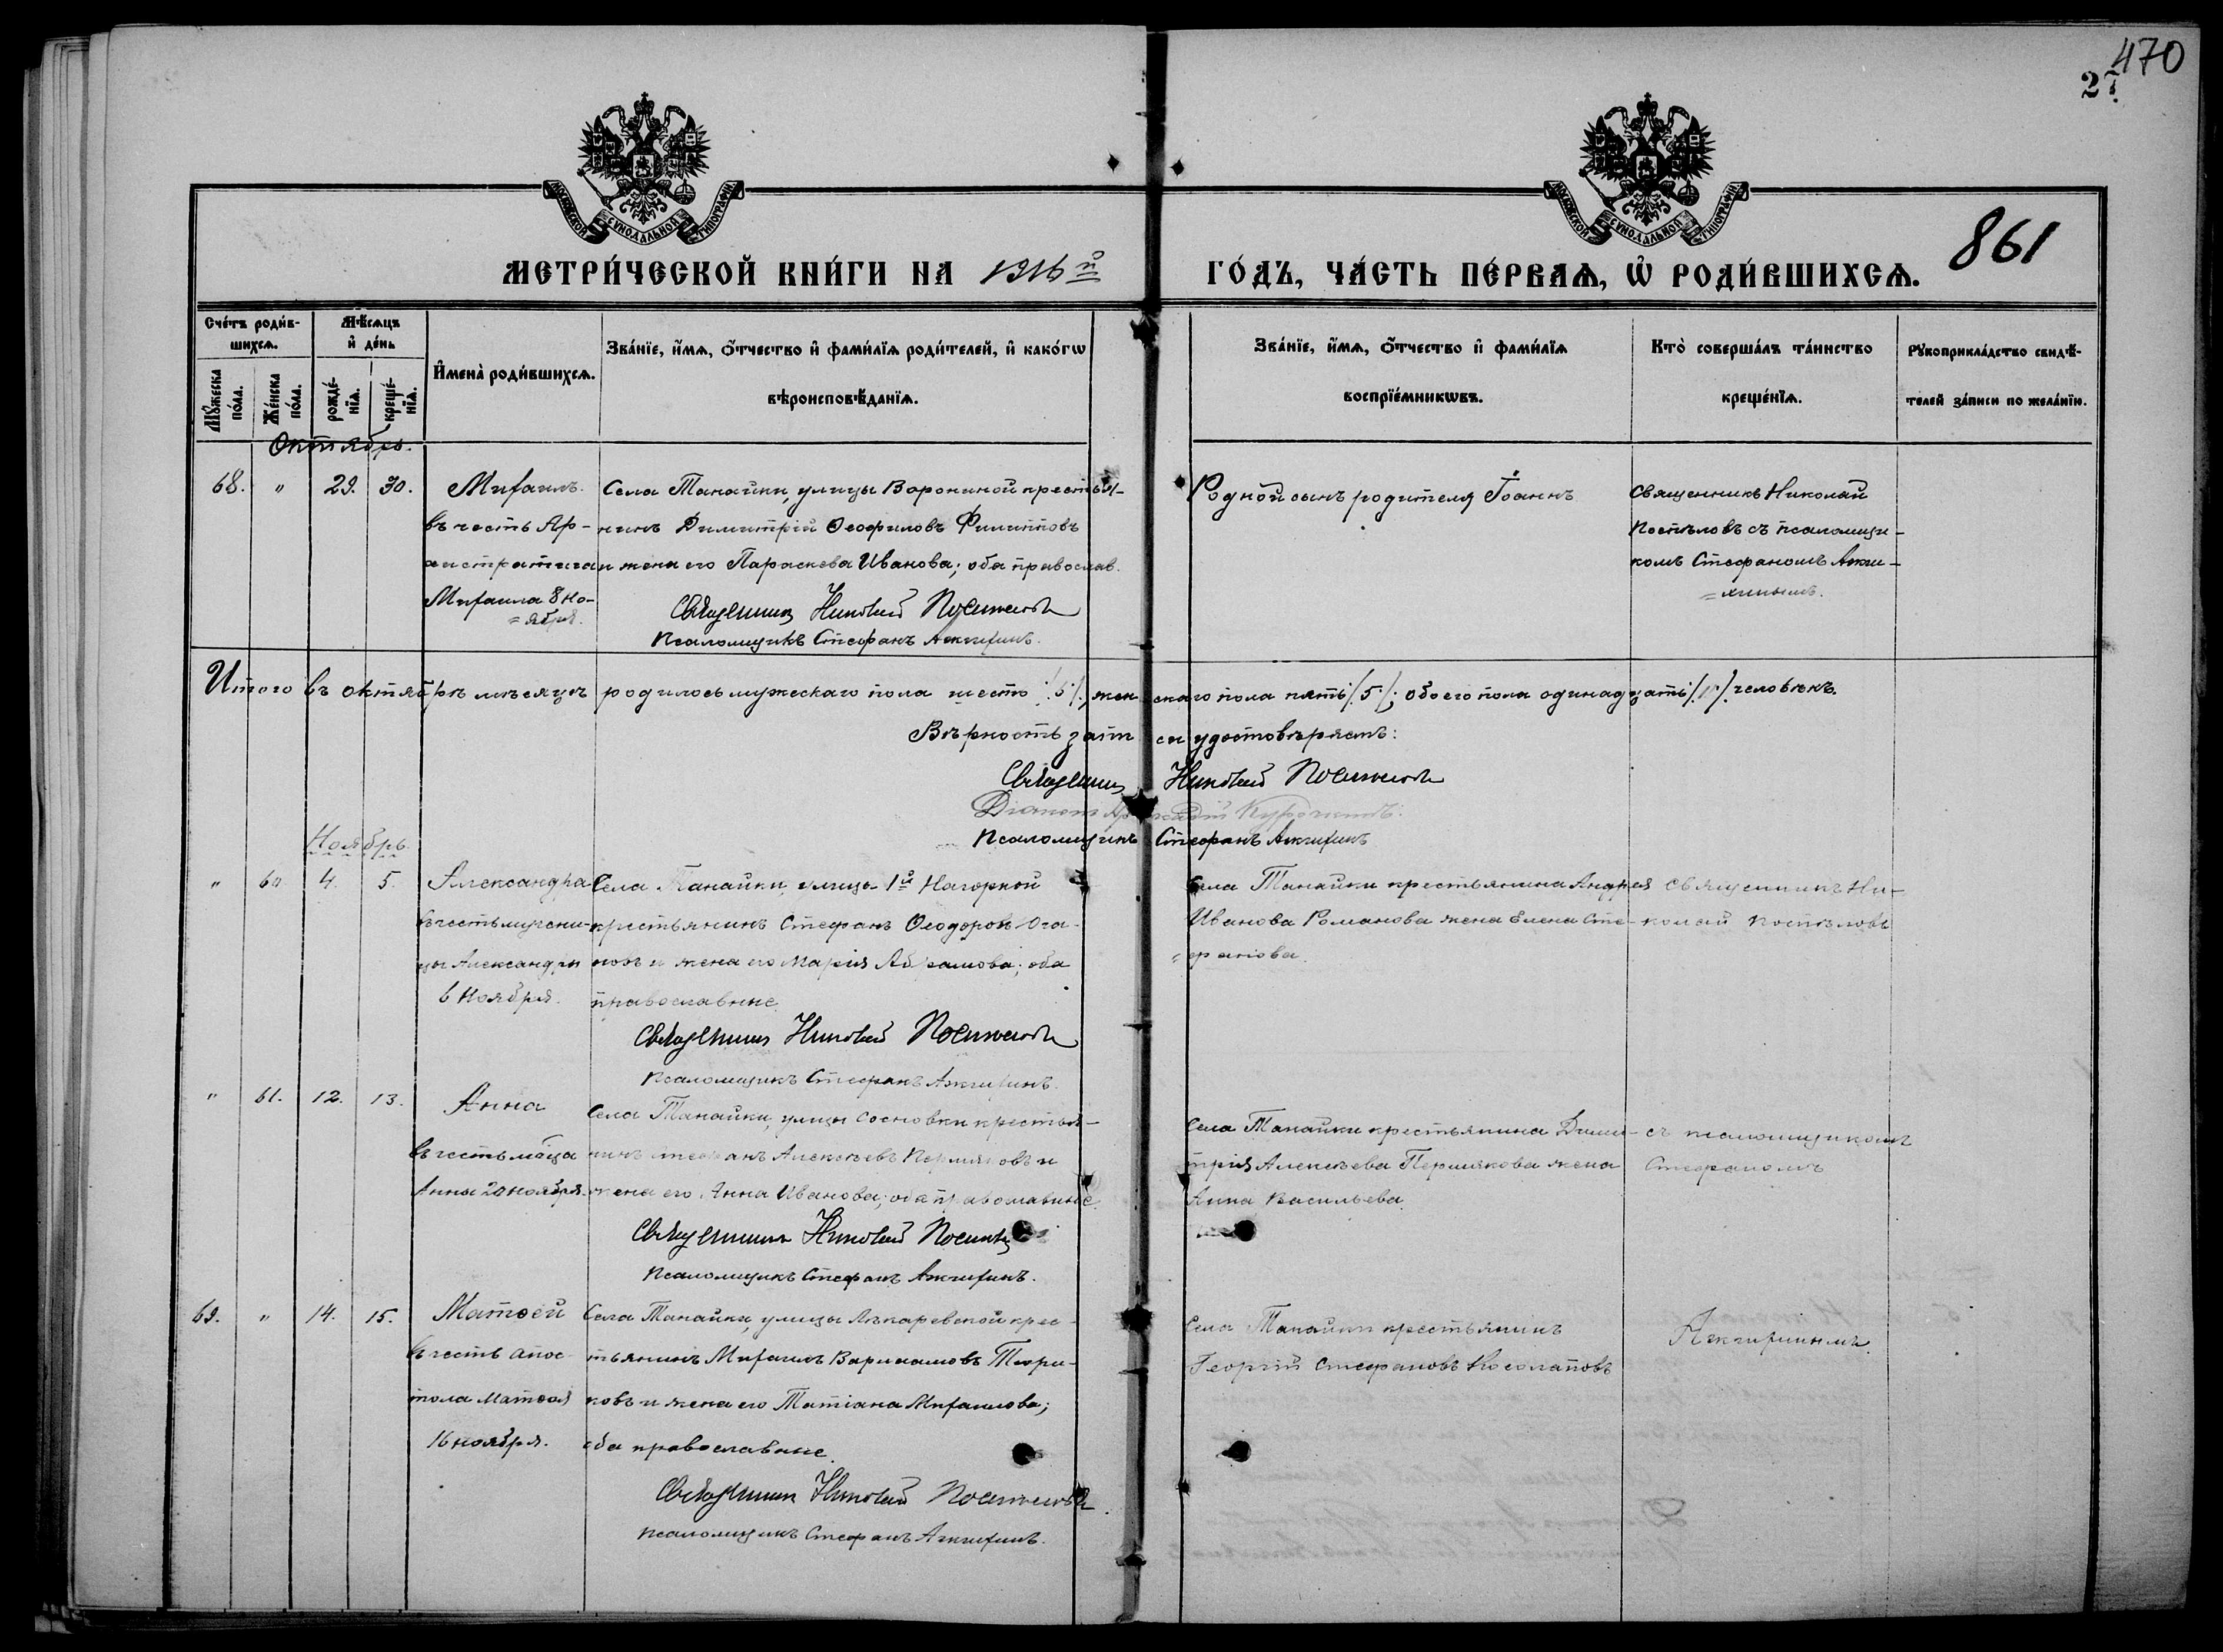 470
27.
861
МОСКОВСКОЙ СѴНОДАЛЬНОЙ ТИПОГРАФІИ
МОСКОВСКОЙ СѴНОДАЛЬНОЙ ТИПОГРАФІИ
МЕТРИ́ЧЕСКОЙ КНИ́ГИ НА 1916й ГО́ДЪ, ЧА́СТЬ ПЕ́РВАѦ, Ѡ҆ РОДИ́ВШИХСѦ.
Сче́тъ роди́в-
шихсѧ.
Мѣ́сѧцъ
и҆ де́нь
Мꙋ́жеска
по́ла.
Же́нска
по́ла.
рожде́-
нїѧ.
креще́-
нїѧ.
И҆мена̀ роди́вшихсѧ.
Зва́нїе, и҆́мѧ, ѻ҆́тчество и҆ фами́лїѧ роди́телей, и҆ како́гѡ
вѣроисповѣ́данїѧ.
Зва́нїе, и҆́мѧ, ѻ҆́тчество и҆ фами́лїѧ
воспрїе́мникѡвъ.
Кто̀ соверша́лъ та́инство
креще́нїѧ.
Рꙋкоприкла́дство свидѣ́-
телей за́писи по жела́нїю.
Октябрь.
68. " 29. 30.
Михаилъ.
въ честь Ар-
хистратига
Михаила 8 но-
=ября.
Села Танайки, улицы Ворониной крестья-
нинъ Димитрій Ѳеофиловъ Филипповъ
и жена его Параскева Иванова; оба православ.
Священникъ Николай Поспѣловъ
Псаломщикъ Стефанъ Ажгихинъ.
Родной сынъ родителя Іоаннъ
Священникъ Николай
Поспѣловъ съ псаломщи-
комъ Стефаномъ Ажги-
=хинымъ.
Итого въ октябрѣ мѣсяцѣ родилось мужескаго пола шесть /6/, женскаго пола пять /5/; обоего пола одинадцать /11/ человѣкъ.
Вѣрность записи удостовѣряемъ:
Священникъ Николай Поспѣловъ
Діаконъ Аркадій Курочкинъ.
Псаломщикъ Стефанъ Ажгихинъ
Ноябрь.
" 60 4. 5.
Александра
въ честь мучени-
цы Александры
6 Ноября.
Села Танайки, улицы 1й Нагорной
крестьянинъ Стефанъ Ѳеодоровъ
и жена его Марія Абрамова; оба
православные.
Священникъ Николай Поспѣловъ
Псаломщикъ Стефанъ Ажгихинъ.
Села Танайки крестьянина Андрея
Иванова Романова жена Елена Сте-
=фанова.
Священникъ Ни-
колай Поспѣловъ
" 61. 12. 13.
Анна
въ честь мчца
Анны 20 ноября.
Села Танайки, улицы Сосновки крестья-
нинъ Стефанъ Алексѣевъ Пермяковъ и
жена его Анна Иванова; оба православные.
Священникъ Николай Поспѣловъ
Псаломщикъ Стефанъ Ажгихинъ.
Села Танайки крестьянина Дими-
трія Алексѣева Пермякова жена
Анна Васильева.
съ псаломщикомъ
Стефаномъ
69. " 14. 15.
Матѳей
въ честь апос-
тола Матѳея
16 ноября.
Села Танайки, улицы Лѣкаревской крес-
тьянинъ Михаилъ Варлаамовъ
и жена его Татіана Михаилова;
оба православные.
Священникъ Николай Поспѣловъ
Псаломщикъ Стефанъ Ажгихинъ.
Села Танайки крестьянинъ
Георгій Стефановъ Косолаповъ
Ажгихинымъ.